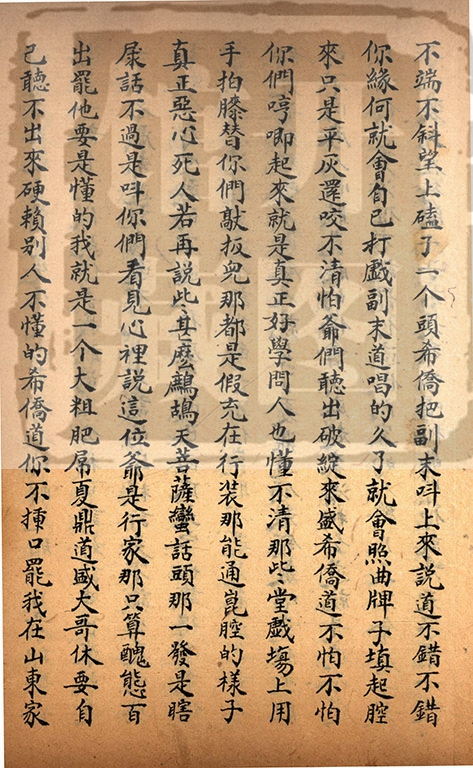 不端不斜望上磕了一个頭希僑把副末呌上來説道不錯不錯
你緣何就會自己打戲副末道唱的久了就會照曲牌子填起腔
來只是平灰還咬不清怕爺們聽出破綻來盛希僑道不怕不怕
你們哼唧起來就是真正好學問人也懂不清那些堂戲塲上用
手拍膝替你們敲板兒那都是假充在行装那能通崑腔的樣子
真正惡心死人若再説些甚麽鷓鴣天菩薩蠻話頭那一發是瞎
𡱁話不過是呌你們看見心裡說這位爺是行家那只算醜態百
出罷他要是懂的我就是一个大粗肥屌夏鼎道盛大哥休要自
己聽不出來硬賴别人不懂的希僑道你不揷口罷我在山東家